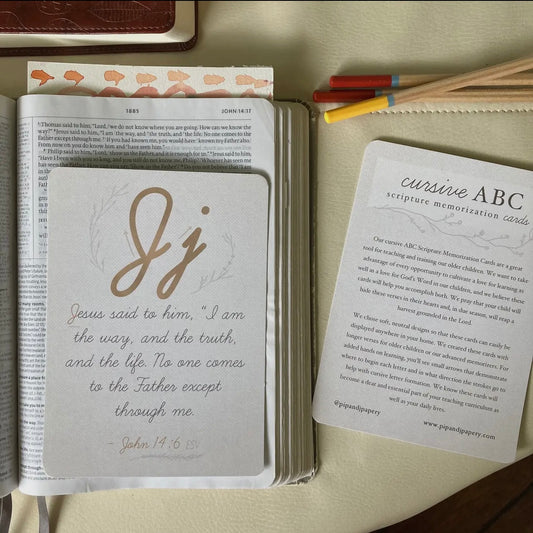 1885
JOHN 14:17
Thomas said to him, "Lord, we do not know where you are going. How can we know the
way?" Jesus said to him, "I am the way, and the truth, and the life. No one comes to the
Father except through me. If you had known me, you would have known my Father also.
From now on you do know him and have seen him."
Philip said to him, "Lord, show us the Father, and it is enough for us." Jesus said to him,
"Have I been with you so long, and you still do not know me, Philip? Whoever has seen me
has seen the Father. How can you say, 'Show us the Father'? Do you not believe that I am
Jj
Jesus said to him, "I am
the way, and the truth,
and the life. No one comes
to the Father except
through me.
- John 14:6 ESV
cursive ABC
scripture memorization cards
Our cursive ABC Scripture Memorization Cards are a great
tool for teaching and training our older children. We want to take
advantage of every opportunity to cultivate a love for learning as
well as a love for God's Word in our children, and we believe these
cards will help you accomplish both. We pray that your child will
hide these verses in their hearts and, in due season, will reap a
harvest grounded in the Lord.
We chose soft, neutral designs so that these cards can be easily
displayed anywhere in your home. We created these cards with
longer verses for older children or our advanced memorizers. For
added hands on learning, you'll see small arrows that demonstrate
where to begin each letter and in what direction the strokes go to
help with cursive letter formation. We know these cards will
become a dear and essential part of your teaching curriculum as
well as your daily lives.
@pipandjpapery
www.pipandjpapery.com